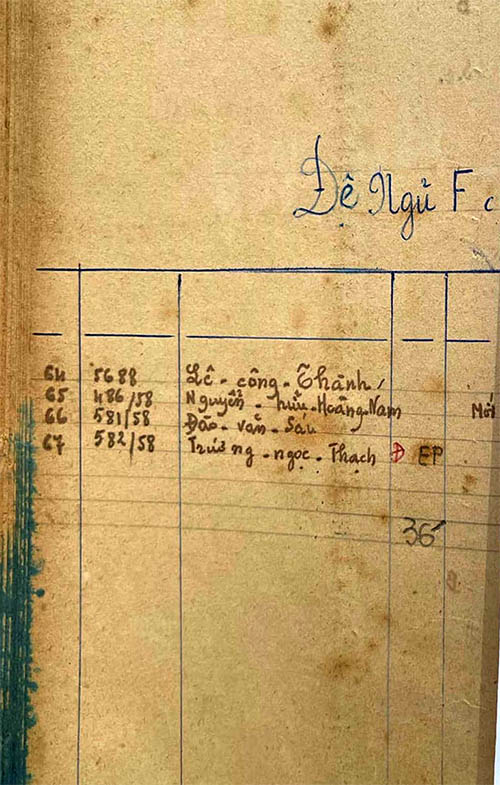 Đệ Ngủ F
64 5688 Lê - công - Thành
65 486/58 Nguyễn - hữu - Hoàng Nam Mới
66 581/58 Đào - văn - Sáu
67 582/58 Trương - ngọc - Thạch Đ EP
36